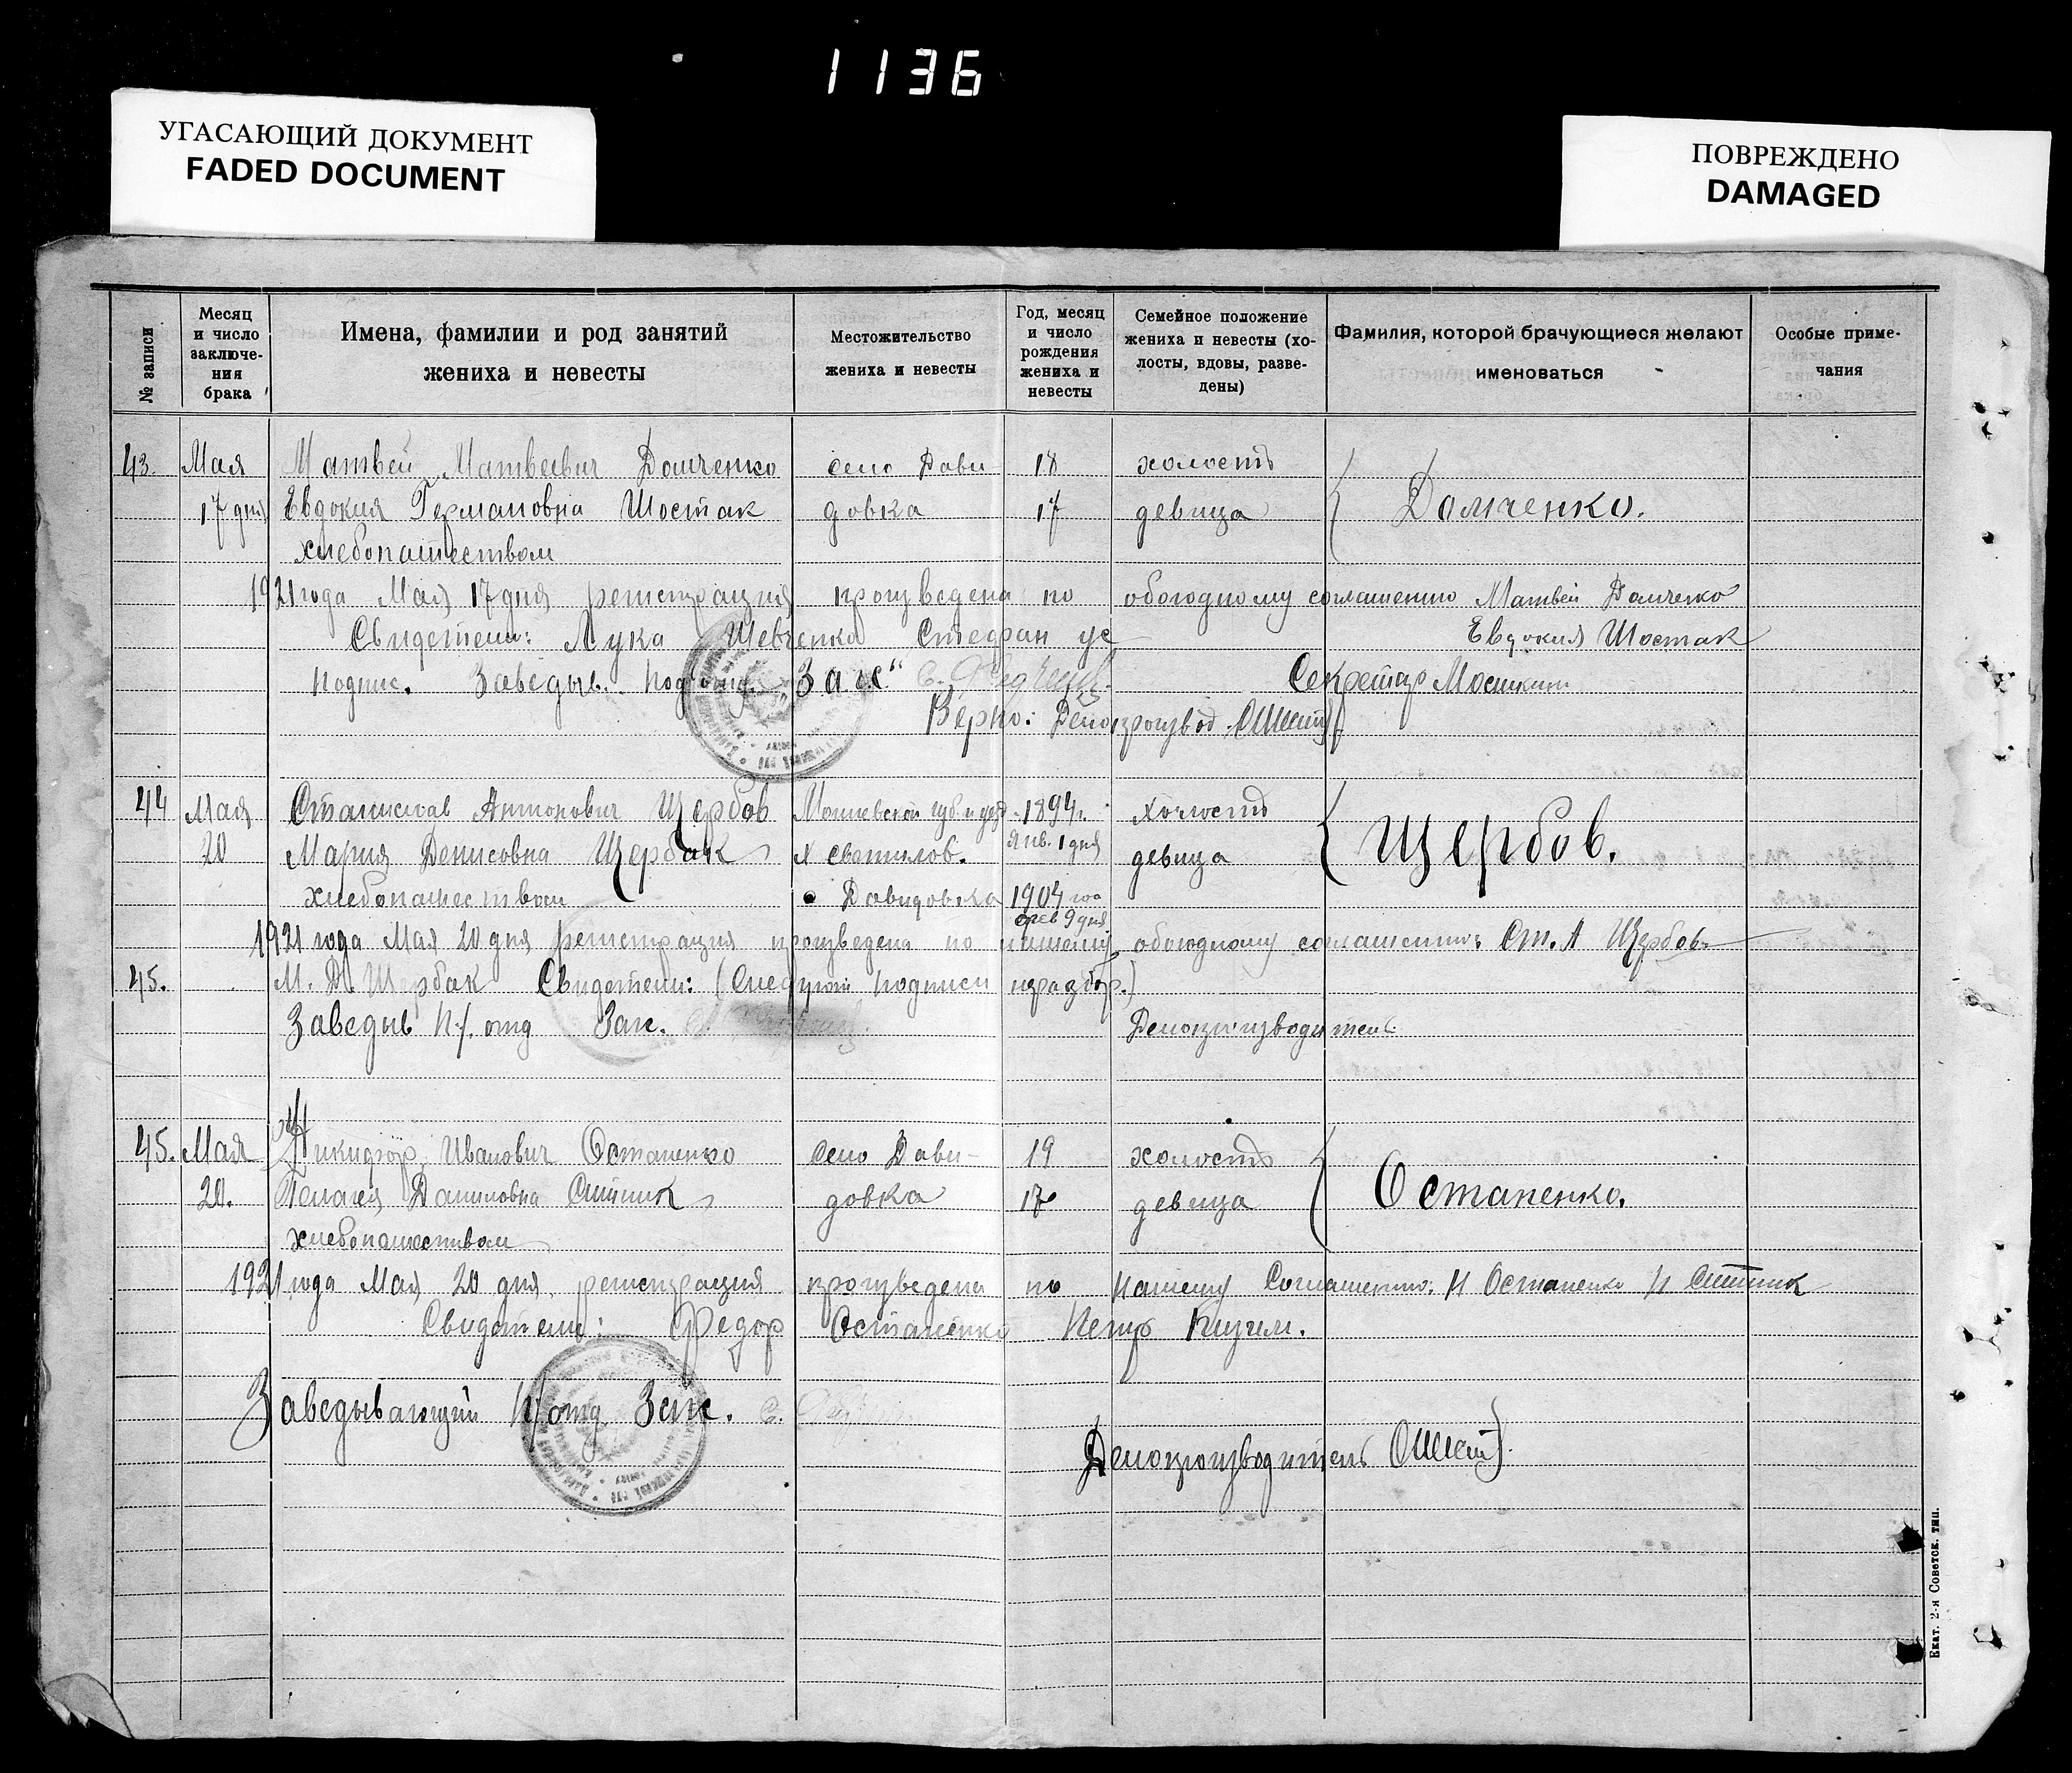 1136
УГАСАЮЩИЙ ДОКУМЕНТ
FADED DOCUMENT
ПОВРЕЖДЕНО
DAMAGED
№ записи
Месяц и число заключе-ния брака
Имена, фамилии и род занятий жениха и невесты
Местожительство жениха и невесты
Год, месяц и число рождения жениха и невесты
Семейное положение жениха и невесты (хо-лосты, вдовы, разве-дены)
Фамилия, которой брачующиеся желают именоваться
Особые приме-чания
43. Мая Матвей Матвеевич Домченко село Дави 18 холостъ
17 дня Евдокия Германовна Шостак довка 17 девица Домченко.
хлебопашеством
1921 года Мая 17 дня регистрация произведена по обоюдному соглашению Матвей Домченко
Свидетели: Лука Шевченко Стефан Евдокия Шостак
подпис. Заведыв. подотд. Загс" С. Секретар
Верно: Делопроизвод.
44 Мая Станислав Антонович Щербов губ и уезд 1894 г. холостъ
20 Мария Денисовна Щербак х янв. 1 дня девица Щербов.
хлебопашеством Давидовка 1904 го
9 дня
1921 года Мая 20 дня регистрация произведена по нашему обоюдному соглашению: Ст. А Щербов
45. М. Д. Щербак Свидетели: (Следуют подписи
Заведыв п/. отд Загс. Делопроизводитель
45. Мая Никифор Иванович Остапенко село Дави- 19 холостъ
20. Пелагея Даниловна Ситник довка 17 девица Остапенко.
хлебопашеством
1921 года Мая 20 дня регистрация произведена по нашему Соглашению: Н Остапенко П Ситник
Свидетели: Федор Остапенко Петр
Заведывающий п/отд Загс. С.
Делопроизводитель
Екат. 2-я Советск. тип.